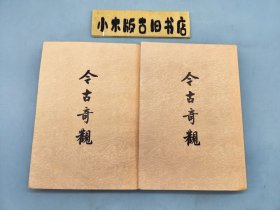 小木版古旧书店
今古奇觀
今古奇觀